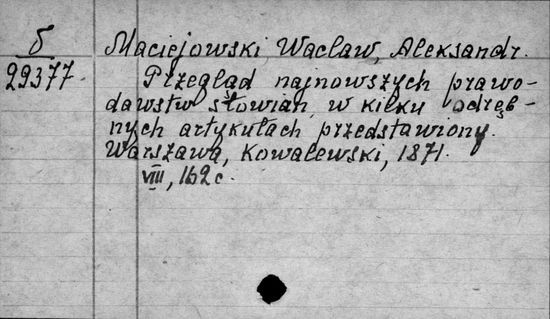 Б
29377.
Maciejowski, Wacław, Aleksandr.
Przegląd najnowszych prawo-
dawstw słowian, w kilku odręb-
nych artykułach przedstawiony.
Warszawa, Kowalewski, 1871.
VIII, 162 c.